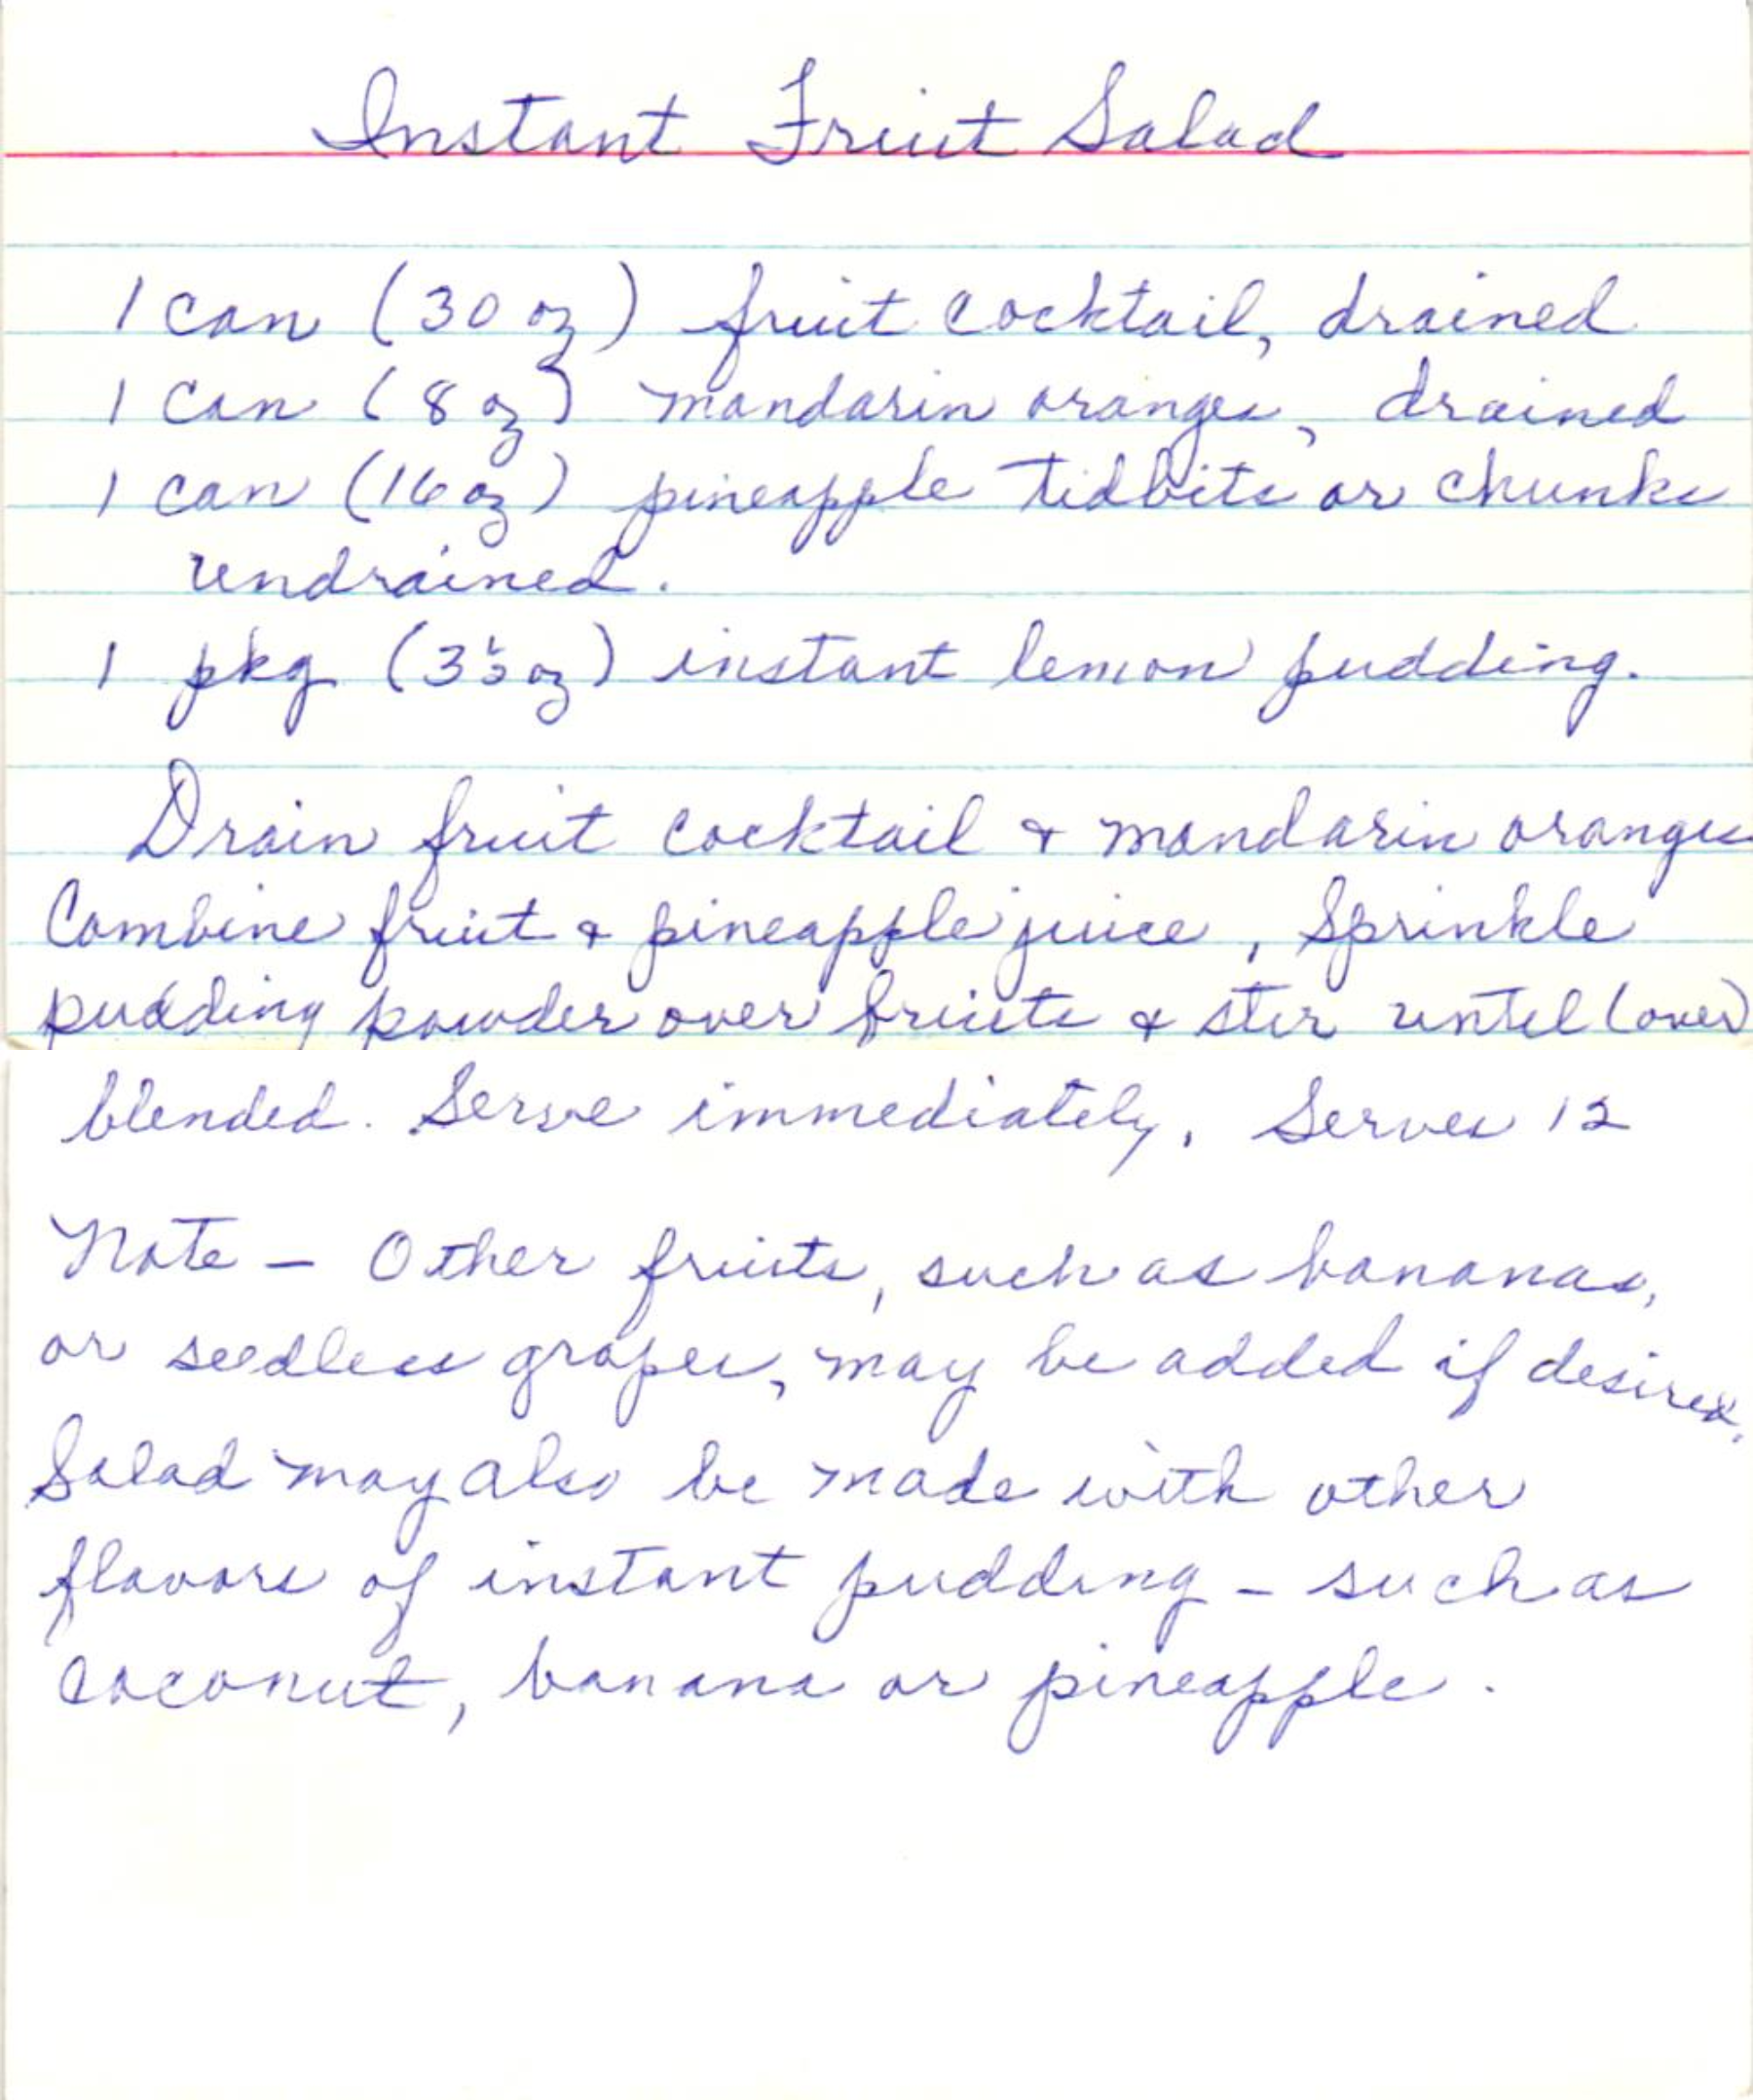 Instant Fruit Salad
1 can (30 oz) fruit cocktail, drained
1 can (8 oz) mandarin oranges, drained
1 can (16 oz) pineapple tidbits or chunks
undrained.
1 pkg (3½ oz) instant lemon pudding.
Drain fruit cocktail & mandarin oranges
Combine fruit & pineapple juice, Sprinkle
pudding powder over fruits & stir until (over)
blended. Serve immediately. Serves 12
Note - Other fruits, such as bananas,
or seedless grapes, may be added if desired.
Salad may also be made with other
flavors of instant pudding - such as
coconut, banana or pineapple.